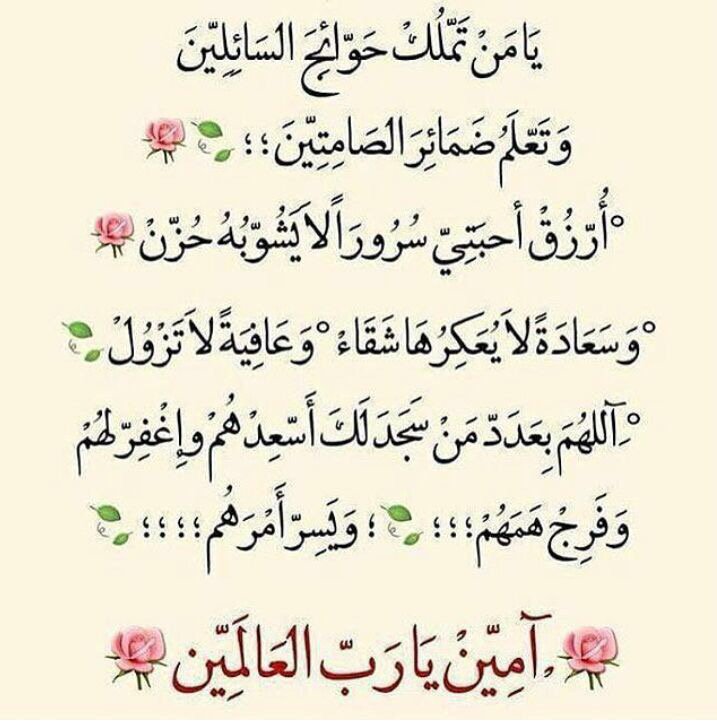 يَا مَنْ تَمّلُكْ حَوّائِجَ السَائِلِيّنَ
وَ تَعّلَمُ ضَمَائِرَ الصَامِتِيّنَ ؛ ؛
°أُرّزُقْ أحبَتِيّ سُرُورَاً لاَ يَشُوّبُهُ حُزّنْ
°وَسَعَادَةً لاَ يُعَكِرُهَا شَقَاءْ °وَعَافِيَةً لاَ تَزْوُلْ
°ِآللهُمَ بِعَدَدّ مَنْ سَجَدَ لَكَ أَسّعِدْهُمْ وإِغْفِرّ لهُمْ
وَفَرِجْ هَمَهُمْ ؛ ؛ ؛ ؛ وَيَسِرّ أَمْرَهُم ؛ ؛ ؛ ؛
ِآمِيّنْ يَا رَبّ العَالَمِيّن